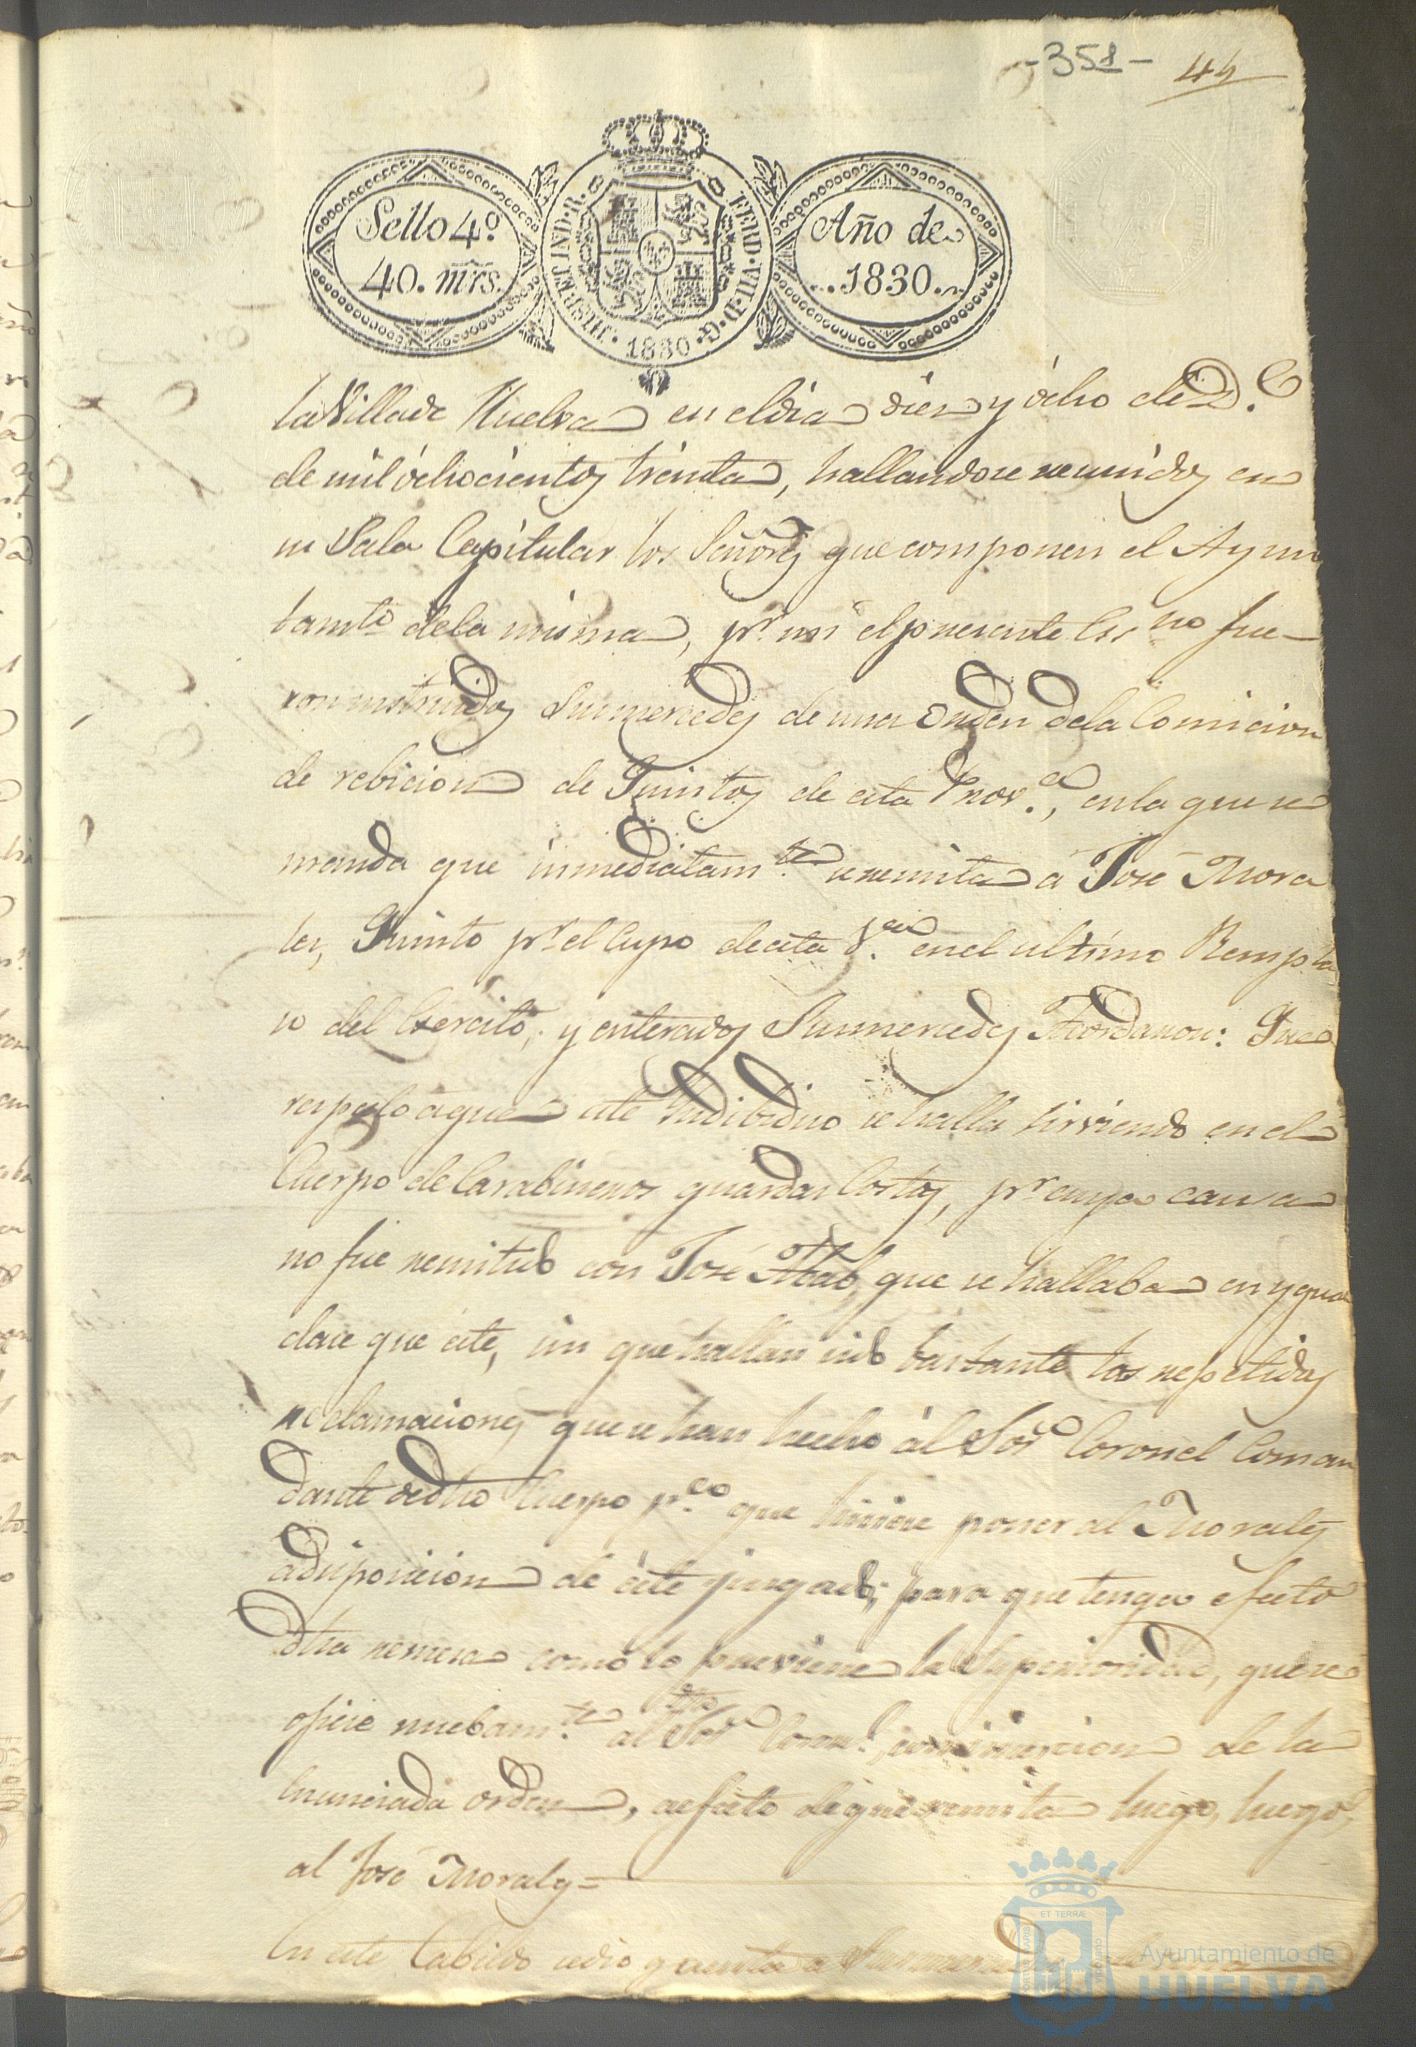 -351-
44
Sello 4º
40. mrs.
HISP. ET IND. R.
FERD. VII. D. G.
1830
Año de
1830.
la Villa de Huelva en el dia diez y ócho de D.e
de mil óchocientos treinta, hallandose reunidos en
su Sala Capitular los Señores que componen el Ayun
tamto. de la misma, pr. mi el presente Esno fue-
ron instruidos Sus mercedes de una Orden de la Comicion
de rebicion de Quintos de esta Prov.a, en la que se
manda que inmediatam.te se remita á José Mora
les, Quinto pr. el Cupo de esta V.a en el ultimo Rempla
so del Exercito; y enterados Sus mercedes Acordaron: Que
respecto á que este Yndibiduo se halla sirviendo en el
Cuerpo de Carabineros guardas Costas, pr. cuya causa
no fue remitido con José que se hallaba en ygual
clase que éste, sin que hallan sido bastante las repetidas
reclamaciones que se han hecho ál Sor. Coronel Coman
dante de dho Cuerpo pa. que hiciese poner al Morales
a disposicion de éste jusgado; para que tenga efecto
dha remesa como lo previene la Superioridad, que se
oficie nuebam.te al dho Sor. Coronl. con insercion de la
enunciada orden, a efecto de que remita luego, luego,
al José Morales =
En este Cabildo se dio quenta a Sus mercedes
ET TERRÆ
Ayuntamiento de
HUELVA